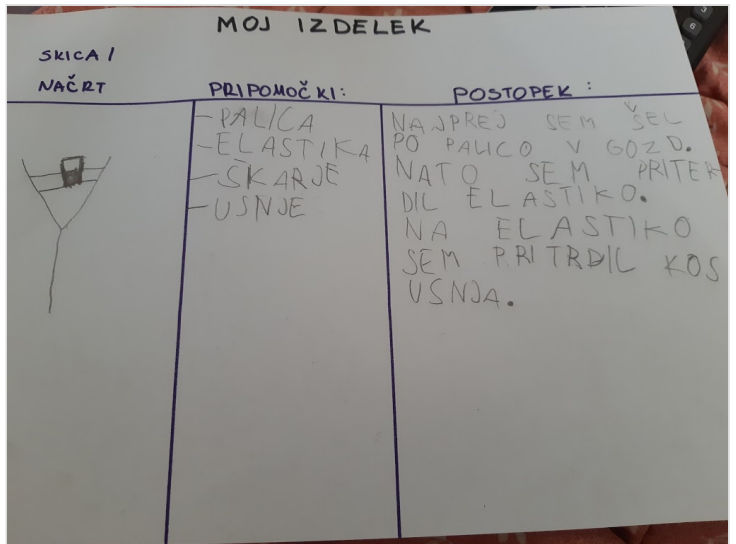 MOJ IZDELEK
SKICA /
NAČRT
PRIPOMOČKI:
- PALICA
- ELASTIKA
- ŠKARJE
- USNJE
POSTOPEK :
NAJPREJ SEM ŠEL
PO PALICO V GOZD.
NATO SEM PRITER
DIL ELASTIKO.
NA ELASTIKO
SEM PRITRDIL KOS
USNJA.